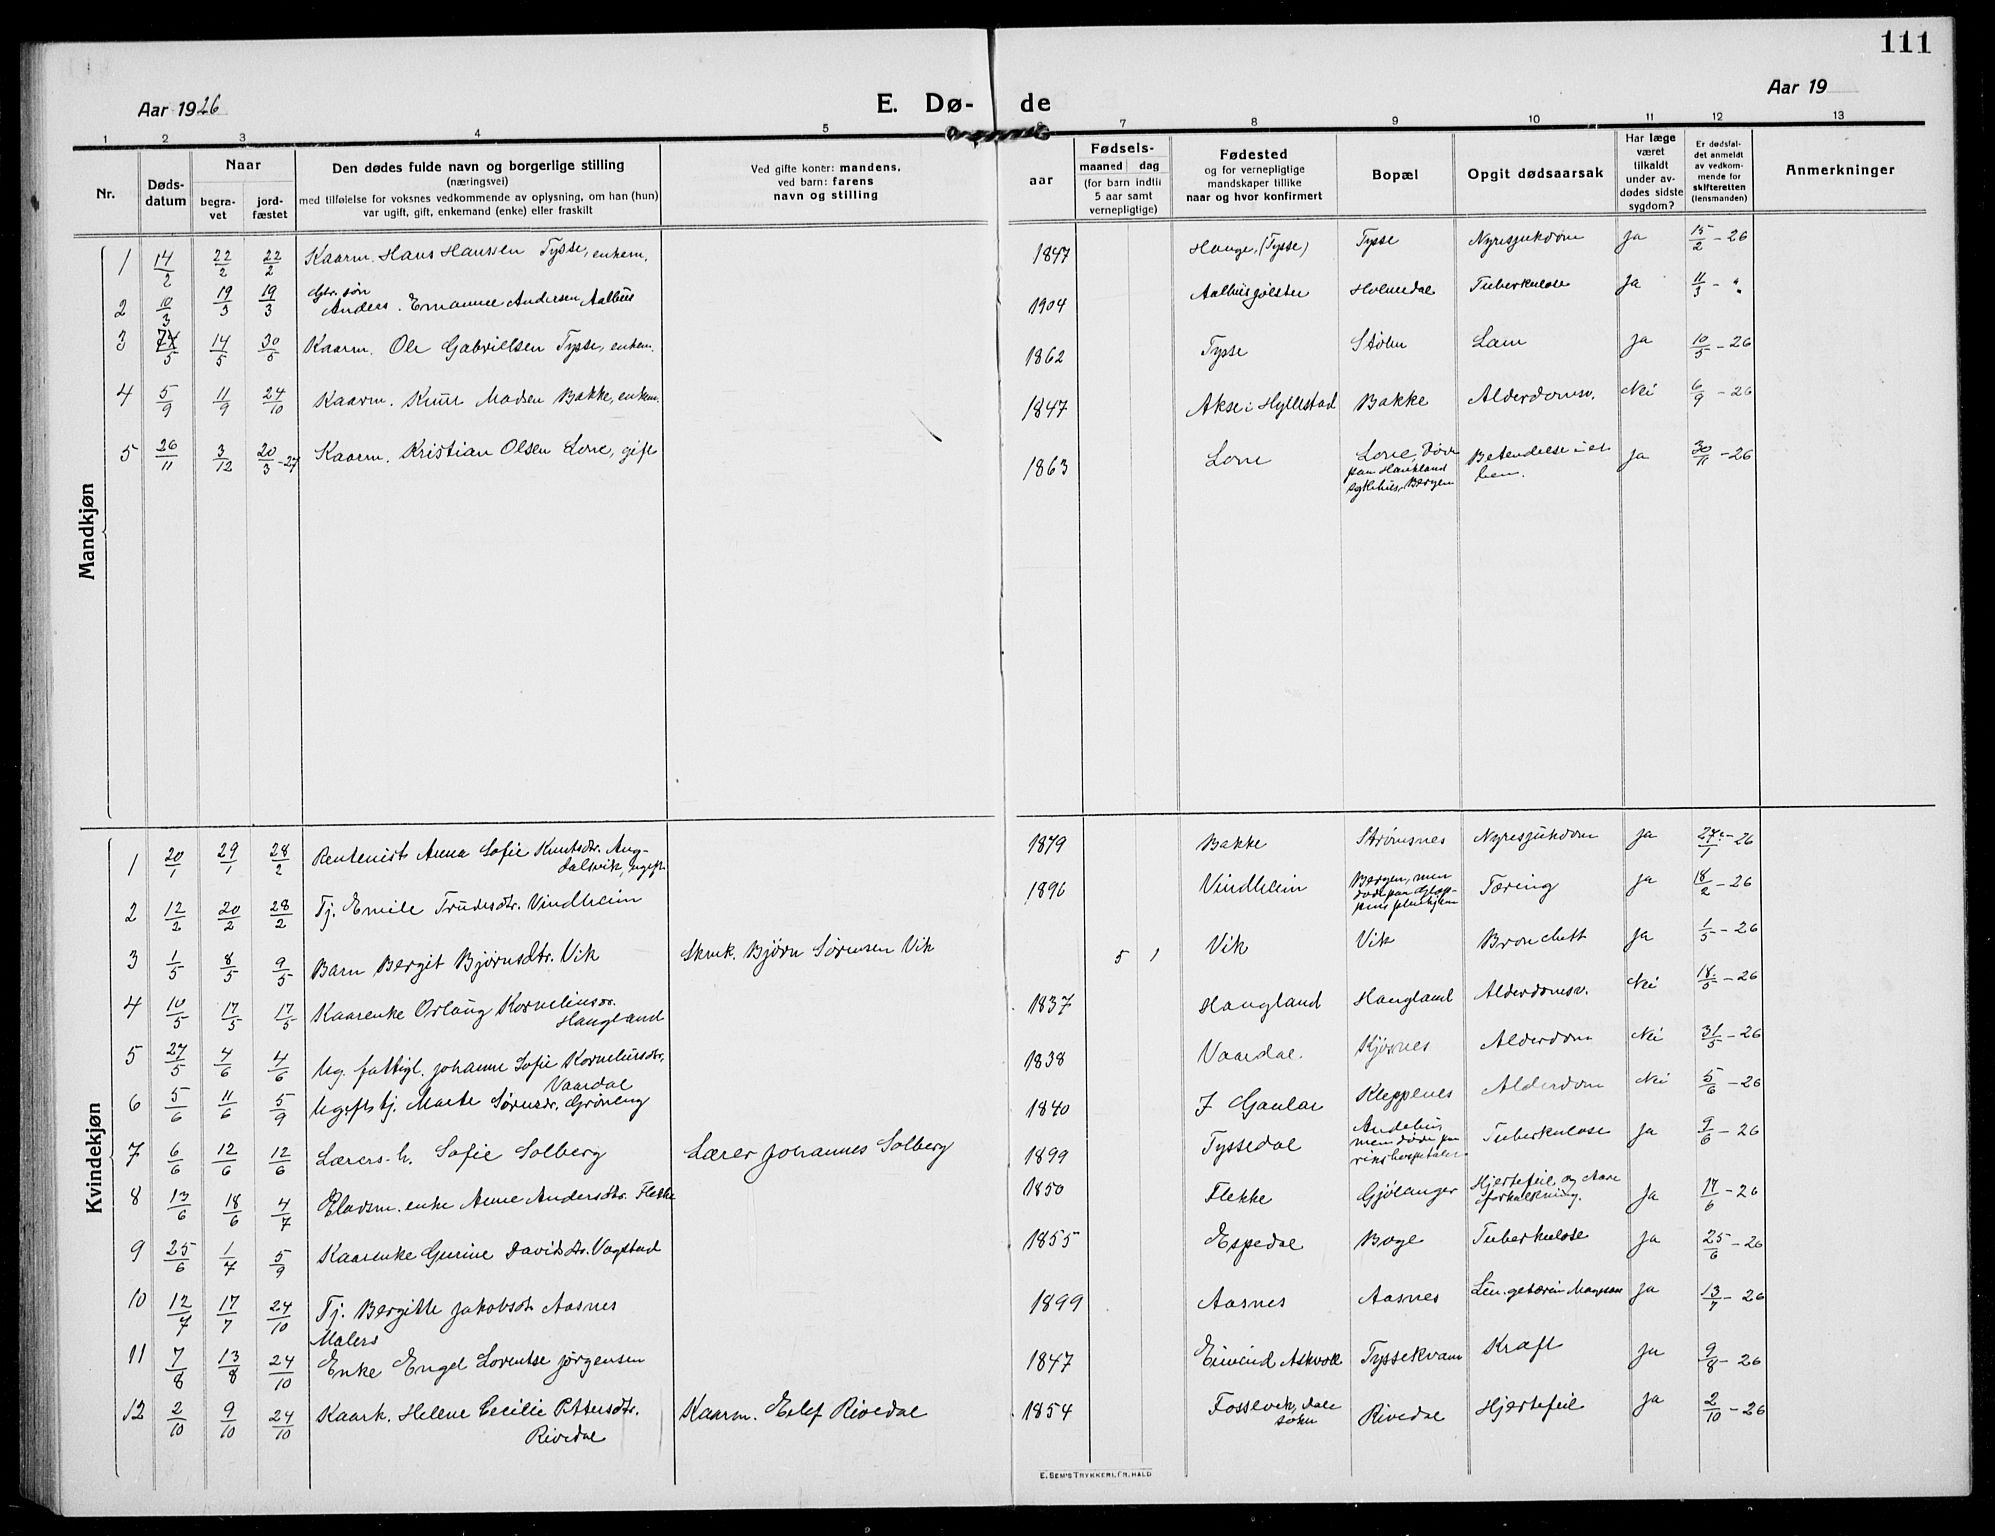 111
Aar 1926
E. Dø- de
Aar 19
1 2 3 4 5 6 7 8 9 10 11 12 13
Nr.
Døds-
datum
Naar
begra-
vet
jord-
fæstet
Den dødes fulde navn og borgerlige stilling
(næringsvei)
med tilføielse for voksnes vedkommende av oplysning, om han (hun)
var ugift, gift, enkemand (enke) eller fraskilt
Ved gifte koner: mandens,
ved barn: farens
navn og stilling
aar
Fødsels-
maaned dag
(for barn indtil
5 aar samt
vernepligtige)
Fødested
og for vernepligtige
mandskaper tillike
naar og hvor konfirmert
Bopæl
Opgit dødsaarsak
Har læge
været
tilkaldt
under av-
dødes sidste
sygdom?
Er dødsfal-
det anmeldt
av vedkom-
mende for
skifteretten
(lensmanden)
Anmerkninger
Mandkjøn
1 14/2 22/2 22/2 Kaarm. Hans Hanssen Tysse, enkem. 1847 Hauge, (Tysse) Tysse Nyresjukdom Ja 15/2 - 26
2 10/3 19/3 19/3 Gbr. søn
Anders. Emanuel Andersen Aalhus 1904 Aalhus Jølster Holmedal Tuberkulose Ja 11/3 - "
3 /5 14/5 30/5 Kaarm. Ole Gabrielsen Tysse, enkem. 1862 Tysse Stølen Lam Ja 10/5 - 26
4 5/9 11/9 24/10 Kaarm. Knut Madsen Bakke, enkem. 1847 Akse i Hyllestad Bakke Alderdomsv. Nei 6/9 - 26
5 26/11 3/12 20/3-27 Kaarm. Kristian Olsen Lone, gift 1863 Lone Lone, døde
paa Haukland
sykehus, Bergen Betendelse i et
ben. Ja 30/11 - 26
Kvindekjøn
1 20/1 29/1 28/2 Rentenist Anna Sofie Knutsdtr. Ang-
dalsvik, ugift. 1879 Bakke Strømsnes Nyresjukdom Ja 27/1 - 26
2 12/2 20/2 28/2 Tj. Emile Trudesdtr. Vindheim 1896 Vindheim Bergen, men
døde paa Glop-
pens pleiehjem Tæring Ja 18/2 - 26
3 1/5 8/5 9/5 Barn Bergit Bjørnsdtr. Vik Skmk. Bjørn Sørensen Vik 5 1 Vik Vik Bronchitt Ja 1/5 - 26
4 10/5 17/5 17/5 Kaarenke Orlaug Korneliusdr.
Haugland 1837 Haugland Haugland Alderdomsv. Nei 18/5 - 26
5 27/5 4/6 4/6 Ug. fattigl. Johanne Sofie Korneliusdtr.
Vaardal 1838 Vaardal. Kjøsnes Alderdom Nei 31/5 - 26
6 5/6 11/6 5/9 Ugift tj. Marte Sørensdr. Grøneng 1840 I Gaular Kleppenes Alderdom Nei 5/6 - 26
7 6/6 12/6 12/6 Lærers h. Sofie Solberg Lærer Johannes Solberg 1899 Tyssedal Andebu,
men døde paa
rikshospitalet Tuberkulose Ja 9/6 - 26
8 13/6 18/6 4/7 enke Anne Andersdtr. Flekke 1850 Flekke Gjølanger Hjertefeil og Aare
forkalkning. Ja 17/6 - 26
9 25/6 1/7 5/9 Kaarenke Gurine Davidsdtr. Vagstad 1855 Espedal Boge Tuberkulose Ja 25/6 - 26
10 12/7 17/7 24/10 Tj. Bergitte Jakobsdt. Aasnes 1899 Aasnes Aasnes Ja 13/7 - 26
11 7/8 13/8 24/10 Malers
Enke Engel Lorentse Jørgensen 1847 Eivind Askvoll Tyssekvam Kræft Ja 9/8 - 26
12 2/10 9/10 24/10 Kaark. Helene Cecilie Pettersdtr.
Rivedal Kaarm. Elef Rivedal 1854 Fossevik, Dale
sokn Rivedal Hjertefeil Ja 2/10 - 26
E. SEM'S TRYKKERI, FR.HALD